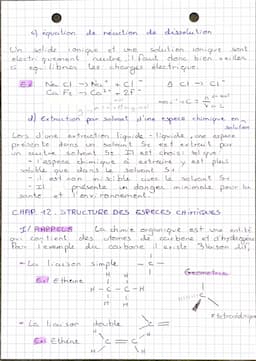 c) équation de réaction de dissolution
Un solide ionique et une solution ionique sont
électriquement neutre, il faut donc bien veiller
à équilibrer les charges électrique.
Ex: Na Cl → Na⁺ + Cl⁻
Ca F₂ → Ca²⁺ + 2F⁻
d) Extraction par solvant d'une espèce chimique en
solution
Lors d'une extraction liquide-liquide, une espèce
présente dans un solvant S₁ est extrait par
un autre solvant S₂. Il est choisi tel que:
- l'espèce chimique à extraire y est plus
soluble que dans le solvant S₁
- il est non miscible avec le solvant S₁
- Il présente un danger minimale pour la
santé et l'environnement.
CHAP 12. STRUCTURE DES ESPECES CHIMIQUES
I/ RAPPELS La chimie organique est une entité
qui contient des atomes de carbone et d'hydrogène
Pour l'exemple du carbone il existe 3 liaison
- La liaison simple - C -
Géométrie
Ex: Ethane
H H
H - C - C - H
H H
C
- La liaison double C =
Ex: Ethène
H H
C = C
H H